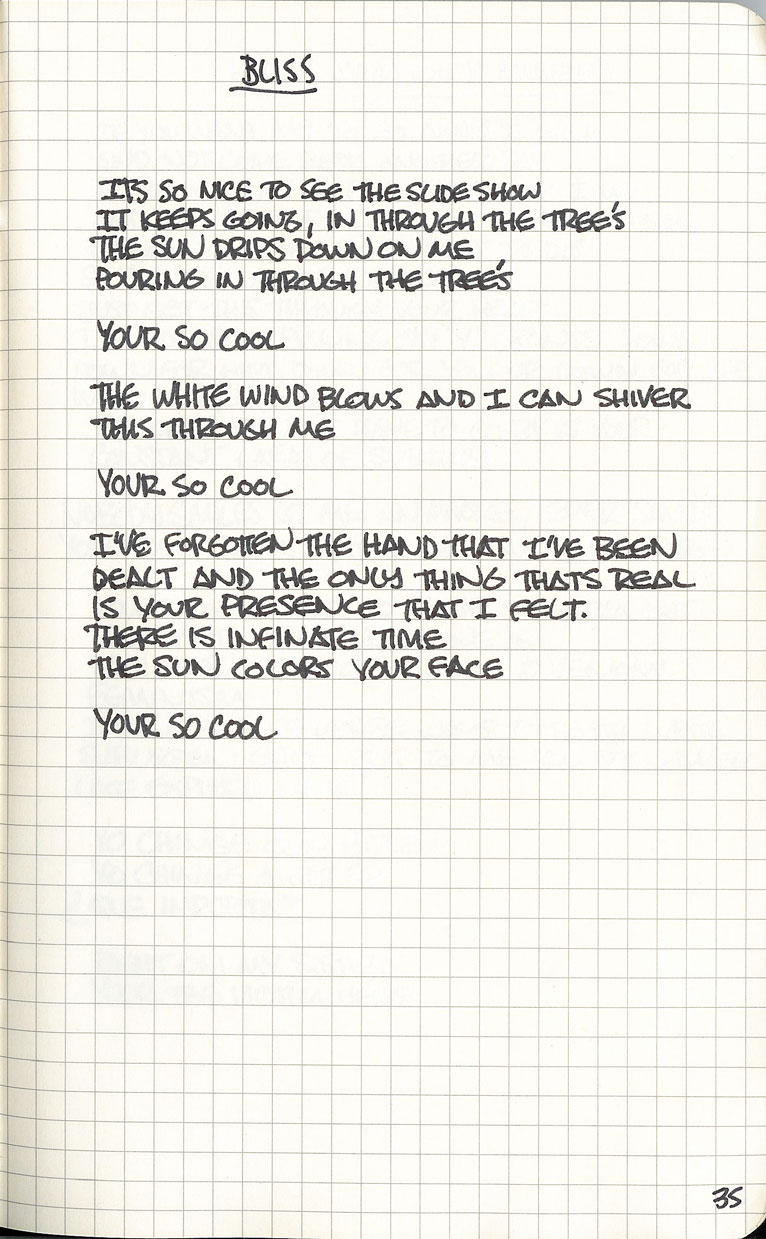 BLISS
IT'S SO NICE TO SEE THE SLIDE SHOW
IT KEEPS GOING, IN THROUGH THE TREE'S
THE SUN DRIPS DOWN ON ME
POURING IN THROUGH THE TREE'S
YOUR SO COOL
THE WHITE WIND BLOWS AND I CAN SHIVER
THIS THROUGH ME
YOUR SO COOL
I'VE FORGOTTEN THE HAND THAT I'VE BEEN
DEALT AND THE ONLY THING THATS REAL
IS YOUR PRESENCE THAT I FELT.
THERE IS INFINATE TIME
THE SUN COLORS YOUR FACE
YOUR SO COOL
35